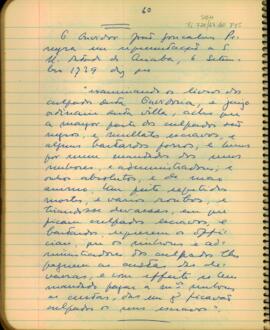 60
O Ouvidor João Gonçalves Pe-
reyra em representação a S.
M. datada de Cuiabá, 6 Setem-
bro 1739 diz que
"examinando os livros dos
culpados desta Ouvidoria, e juizo
ordinario desta villa, achei que
a mayor parte dos culpados são
negros, e mullatos escravos, e
alguns bastardos forros, e huns
por serem mandados dos seus
senhores, e administradores; e
outros absolutos, e de máo
animo. Tem feito repetidas
mortes, e varios roubos, e
tirandose devassas, em que
ficam culpados escravos, e
bastardos, requerem os offi-
ciaes, que os senhores e ad-
ministradores dos culpados lhes
paguem as custas das de-
vassas, e com effeito se tem
mandado pagar a m.tos senhores
as custas, das em q' ficavão
culpados os seus escravos".